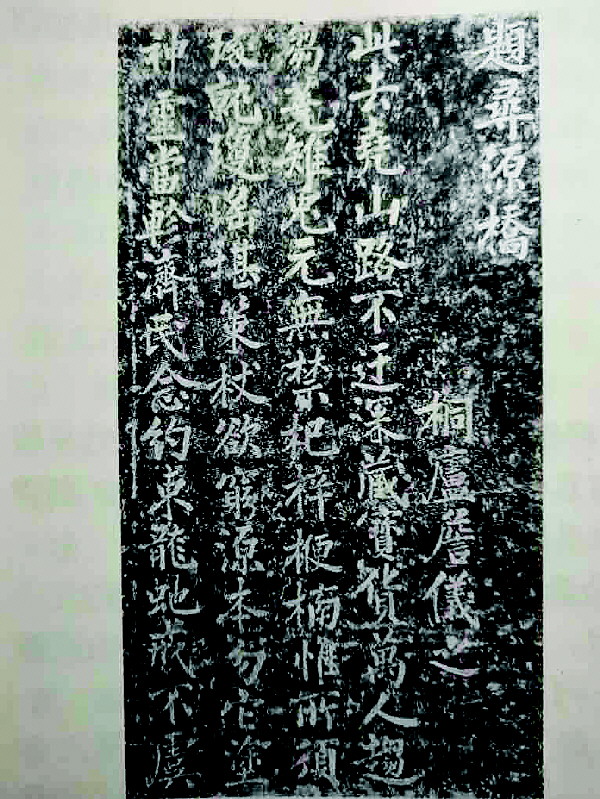 題尋源橋
桐廬詹儀之
此去堯山路不迂深藏寶貨萬人趨
芻蕘雉兔元無禁杞梓楩楠惟所須
就瑤堪策杖欲窮源本勿塗
神靈當軫濟民念約束龍虵戒不虞